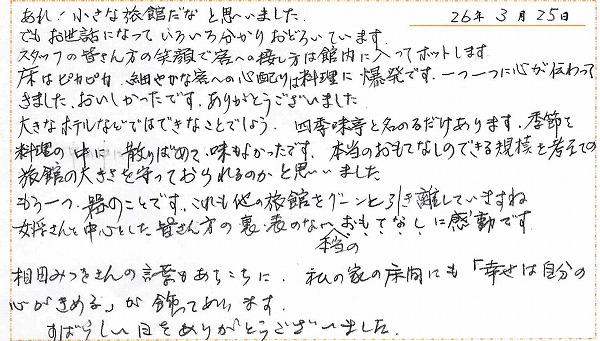 26年 3月 25日
あれ！小さな旅館だな と思いました.
でもお世話になって いろいろ分かり おどろいています.
スタッフの皆さん方の笑顔で客への接し方は館内に入ってホットします
床はピカピカ. 細やかな客への心配りは料理に爆発です. 一つ一つに心が伝わって
きました. おいしかったです. ありがとうございました
大きなホテルなどではできないことでしょう. 四季味亭と名のるだけあります. 季節を
料理の中に 散りばめて. 味もよかったです. 本当のおもてなしのできる規模を考えての
旅館の大きさを守っておられるのかと思いました
もう一つ. 器のことです. これも他の旅館をグーンと引き離していますね
女将さんを中心とした皆さん方の裏・表のない おもてなしに感動です.
本当の
相田みつをさんの言葉もあちこちに. 私の家の床間にも「幸せは自分の
心がきめる」が 飾ってあります.
すばらしい日をありがとうございました.